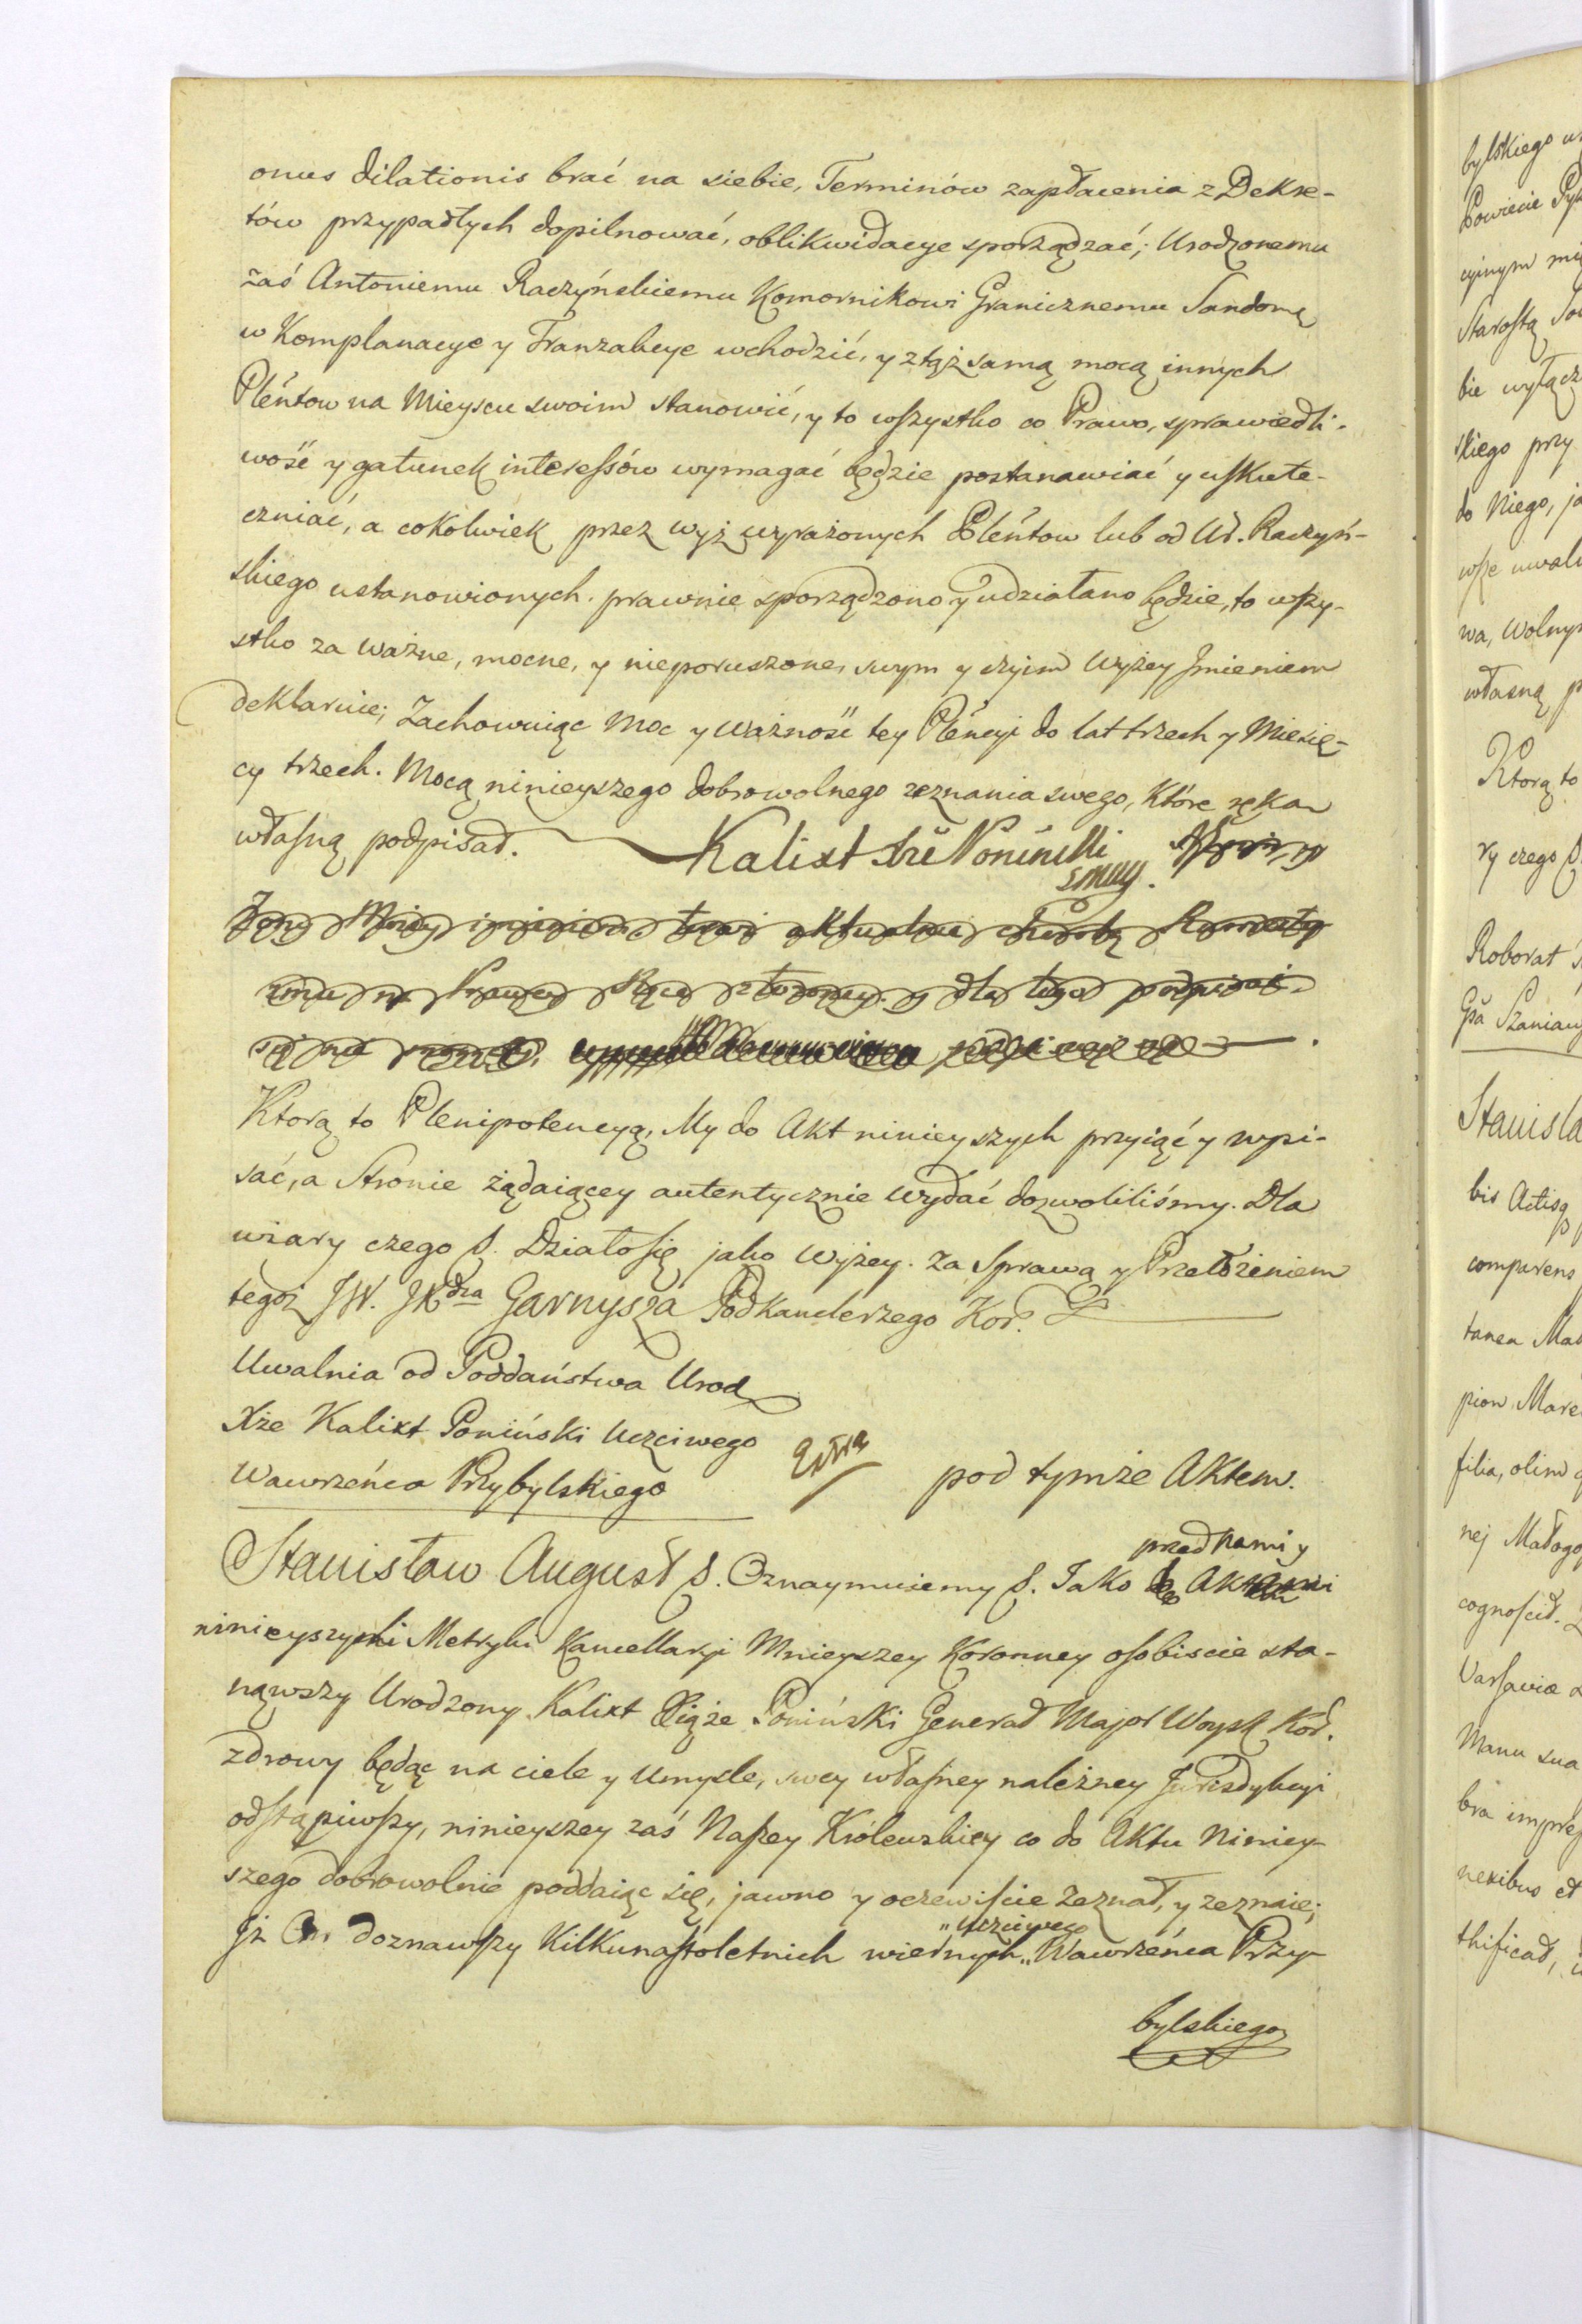 onus dilationis brać na siebie, Terminów zapłacenia z Dekre-
tów przypadłych dopilnować, oblikwidacye sporządzać; Urodzonemu
zaś Antoniemu Raczyńskiemu Komornikowi Granicznemu Sandomę
w Komplanacye y Tranzakcye wchodzić, y z tąż samą mocą innych
Pleńtow na Mieyscu swoim stanowić, y to wszystko co Prawo, sprawiedli-
wość y gatunek interessów wymagać będzie postanawiać y uskute-
czniać, a cokolwiek przez wyż wyrażonych Pleńtow lub od Ur. Raczyń-
skiego ustanowionych prawnie sporządzono y udziałano będzie, to wszy-
stko za ważne, mocne, y nieporuszone, swym y czyim wyżey Jmieniem
deklaruie; Zachowuiąc moc y ważność tey Pleńcyi do lat trzech y Miesię-
cy trzech. Mocą ninieyszego dobrowolnego zeznania swego, które ręką
własną podpisał. Kalixt Xże Poniński
mey imieniem aktualną chorobą
zmu w Prawey Ręce złożoney y dla tego podpisać
się nie
Ktorą to Plenipotencyą, My do Akt ninieyszych przyiąć y wpi-
sać, a Stronie żądaiącey autentycznie wydać dozwoliliśmy. Dla
wiary czego S. Działo się jako wyżey. Za Sprawą y Przełożeniem
tegoż JW. JXdza Garnysza Podkanclerzego Kor.
Uwalnia od Poddaństwa Urod
Xże Kalixt Poniński Uczciwego
Wawrzeńca Przybylskiego
Extra
pod tymże Aktem.
Stanisław August S. Oznaymuiemy S. Iako przed Nami y Aktami
ninieyszymi Metryki Kancellaryi Mnieyszey Koronney osobiscie sta-
nąwszy Urodzony Kalixt Xiąże Poniński Generał Major Woysk Kor.
zdrowy będąc na ciele y umysle, swey własney należney Jurisdykcyi
odstąpiwszy, ninieyszey zaś Naszey Królewskiey co do Aktu niniey-
szego dobrowolnie poddaiąc się, jawno y oczewiście zeznał, y zeznaie;
Jż On doznawszy kilkunastoletnich wiernych „Uczciwego„ Wawrzeńca Przy-
bylskiego
bylskiego
Powiecie
cyinym
Starostą
bie wyłącz
skiego przy
do Niego,
wsze uwal
wa, wolny
własną p
Ktorą to
ry czego S.
Roborat
Stanisla
bis Actisq
comparens
tanea
pion
filia, olim
nej Małogo
cognoscit.
Varsaviæ
Manu sua
bra
nexibus et
thificat,